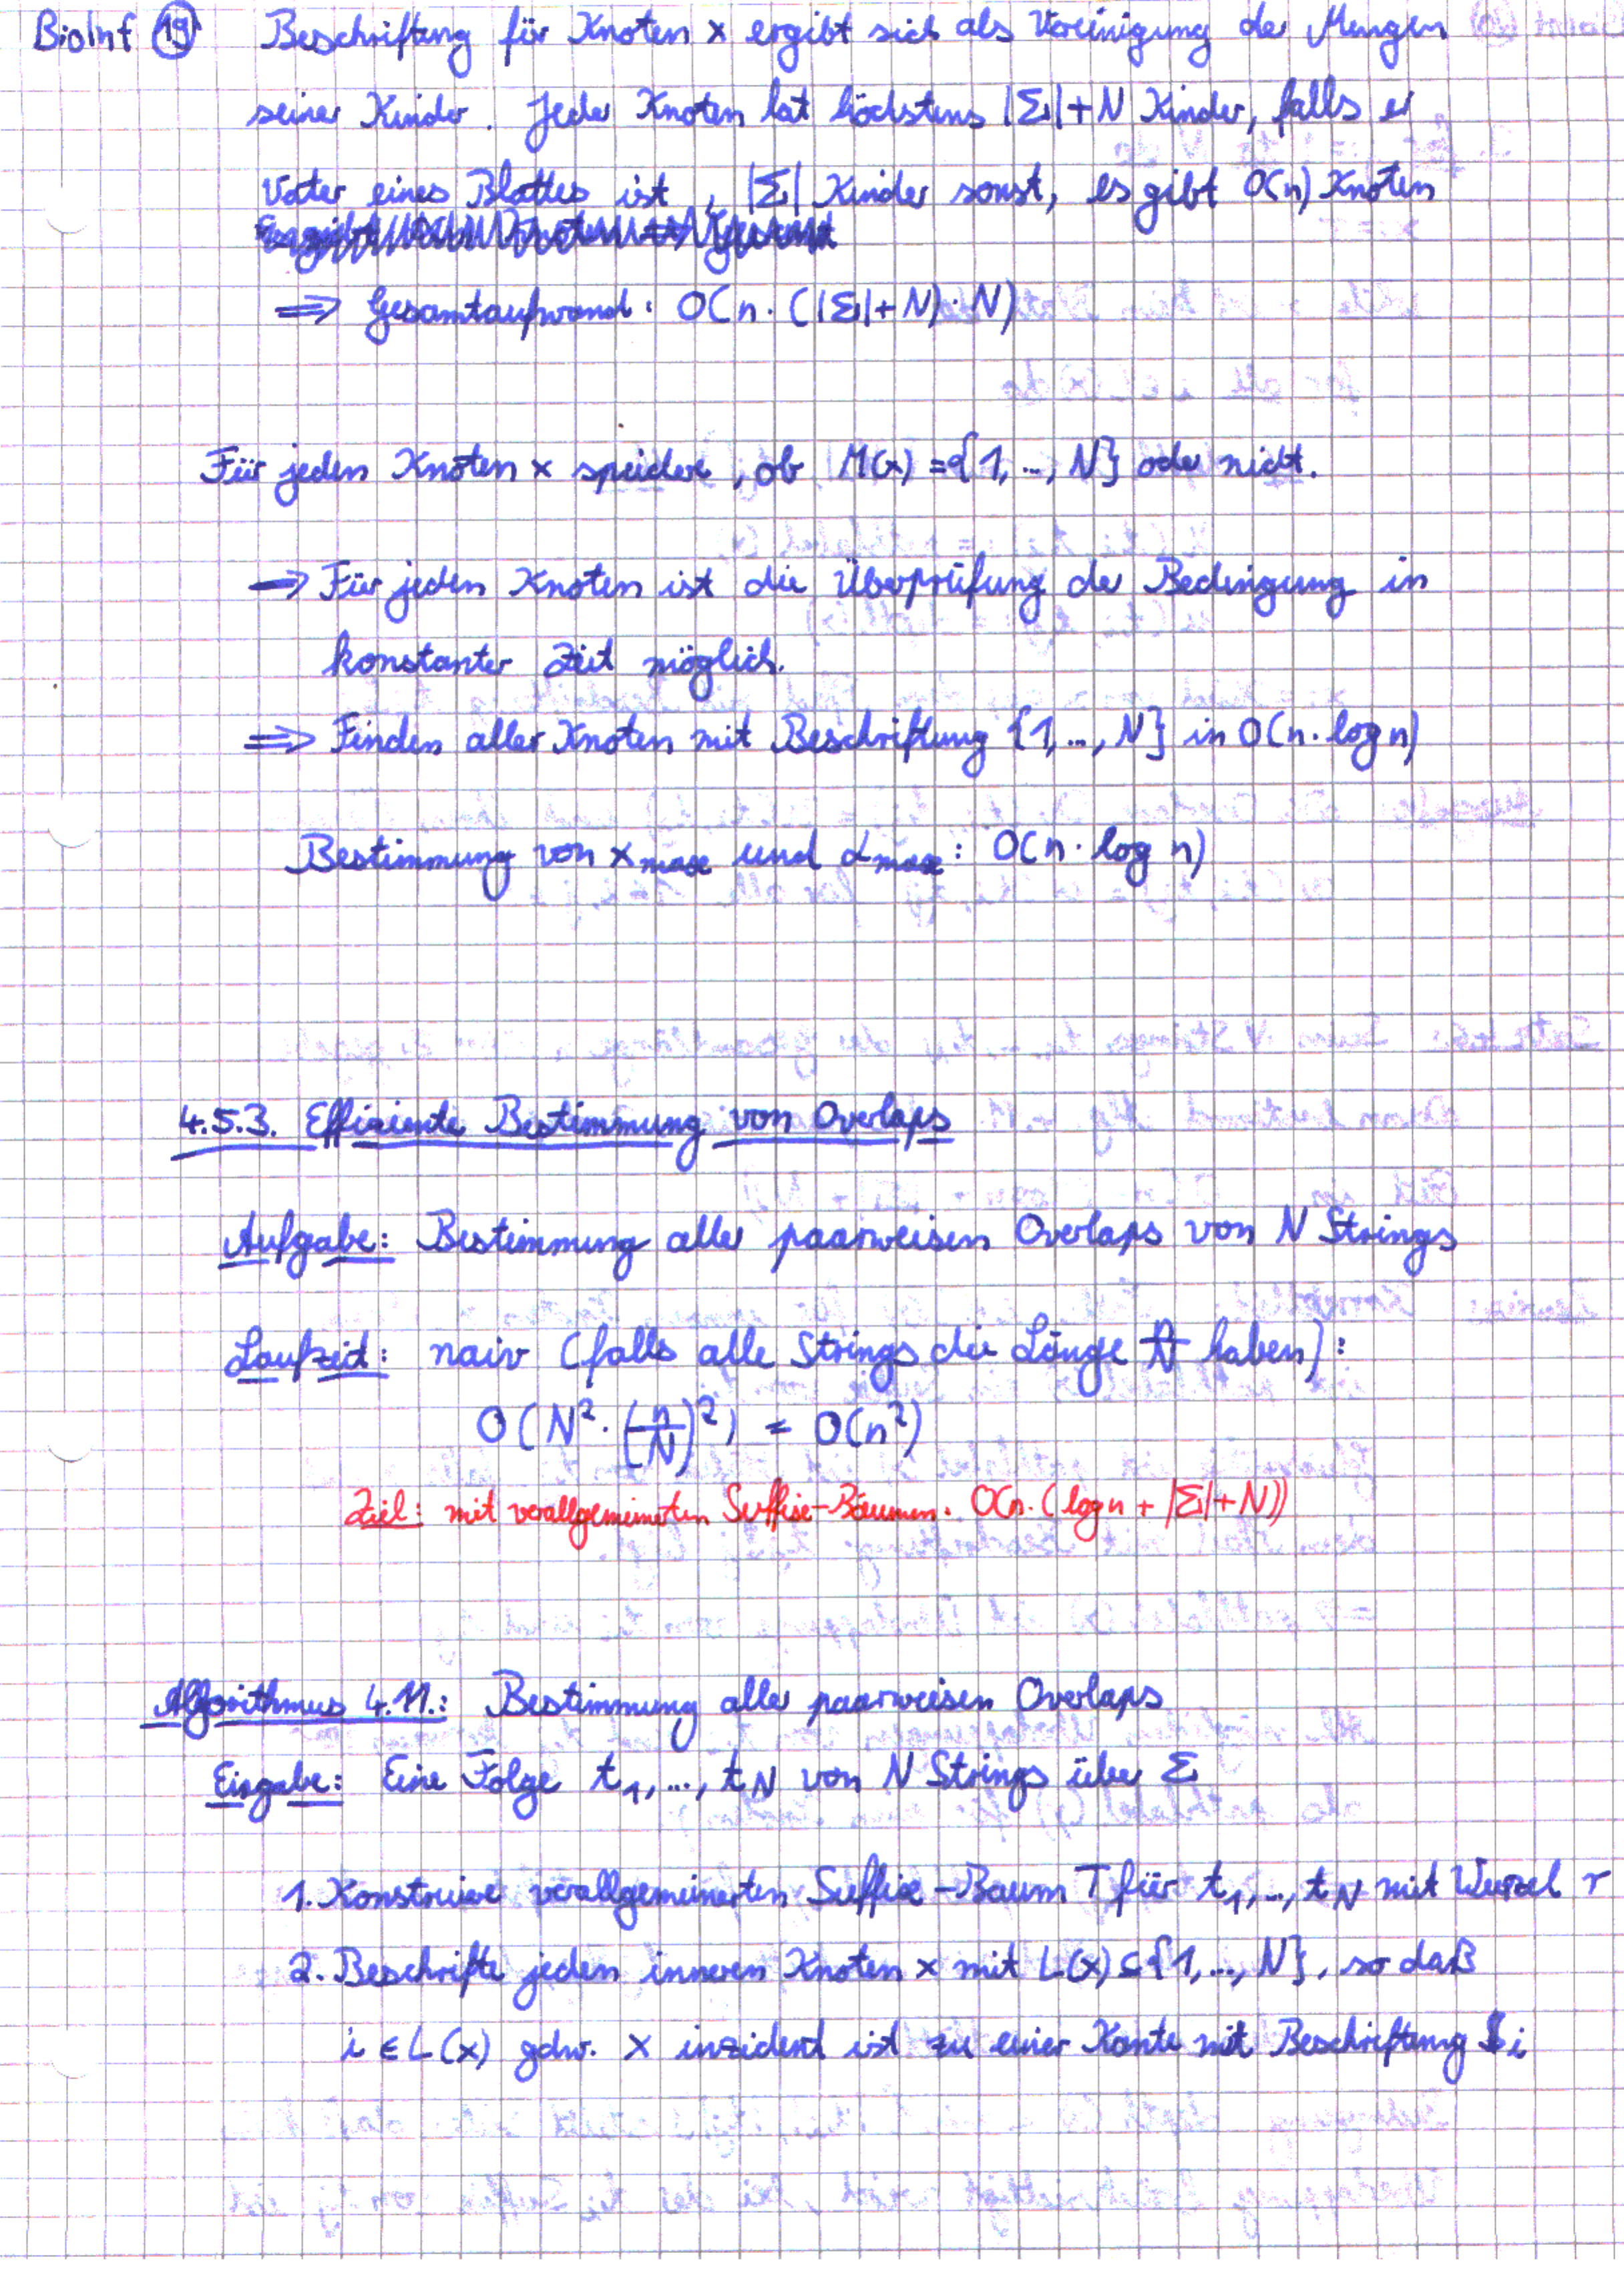 BioInf 19 Beschriftung für Knoten x ergibt sich als Vereinigung der Mengen
seiner Kinder. Jeder Knoten hat höchstens |Σ|+N Kinder, falls er
Vater eines Blattes ist, |Σ| Kinder sonst, es gibt O(n) Knoten
⇒ Gesamtaufwand: O(n·(|Σ|+N)·N)
Für jeden Knoten x speichere, ob M(x)={1,..,N} oder nicht.
⇒ Für jeden Knoten ist die Überprüfung der Bedingung in
konstanter Zeit möglich.
⇒ Finden aller Knoten mit Beschriftung {1,..,N} in O(n·log n)
Bestimmung von x_max und α_max: O(n·log n)
4.5.3. Effiziente Bestimmung von Overlaps
Aufgabe: Bestimmung aller paarweisen Overlaps von N Strings
Laufzeit: naiv (falls alle Strings die Länge haben):
O(N²·(n/N)²) = O(n²)
Ziel: mit verallgemeinerten Suffix-Bäumen: O(n·(log n + |Σ|+N))
Algorithmus 4.11.: Bestimmung aller paarweisen Overlaps
Eingabe: Eine Folge t₁,...,t_N von N Strings über Σ
1. Konstruiere verallgemeinerten Suffix-Baum T für t₁,..,t_N mit Wurzel r
2. Beschrifte jeden inneren Knoten x mit L(x)⊆{1,..,N}, so daß
i ∈ L(x) gdw. x inzident ist zu einer Kante mit Beschriftung $i